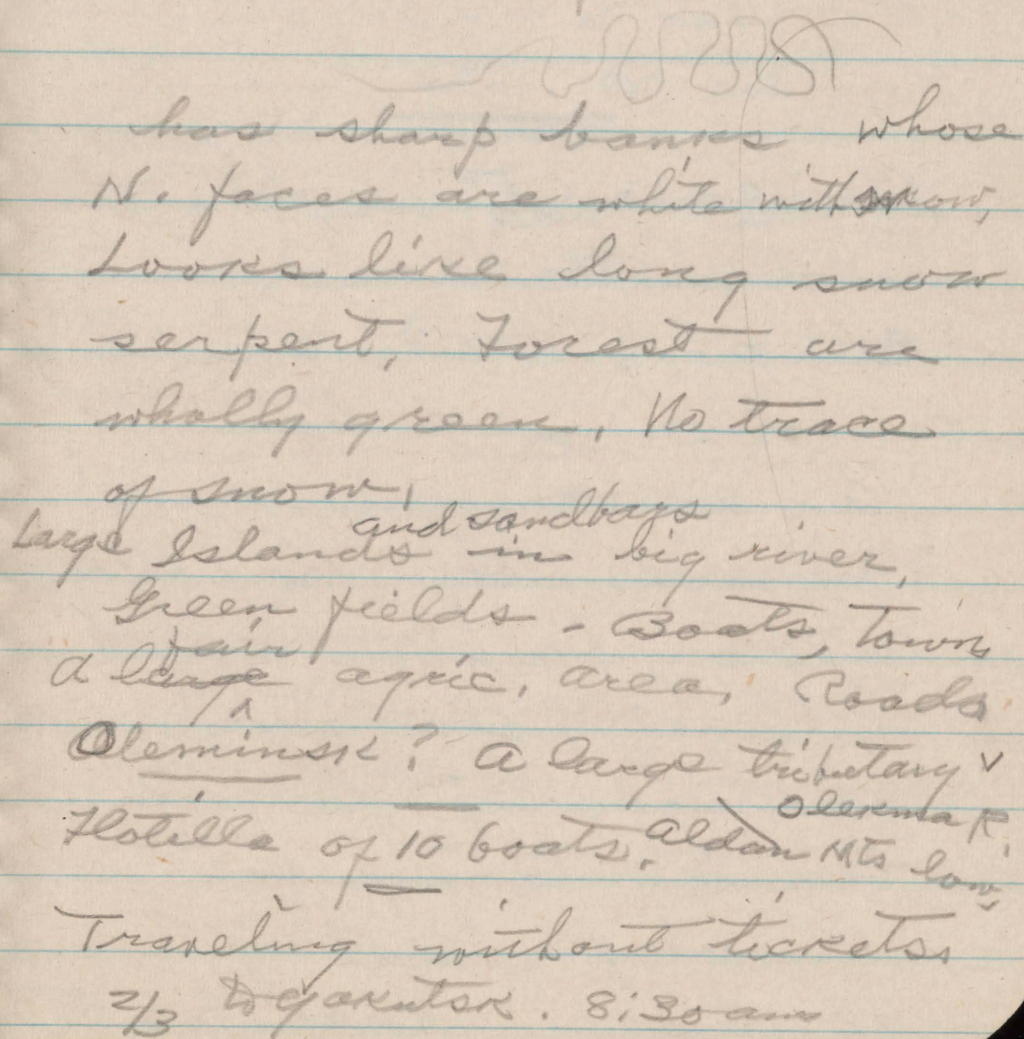 has sharp banks whose
N. faces are white with snow,
Looks like long snow
serpent, Forest are
wholly green, No trace
of snow,
and sandbags
Large Islands in big river,
Green fields - Boats, Town,
fair
A large agric, area, Roads
Oleminsk? A large tributary
Olekma R.
Flotilla of 10 boats, Aldan Mts low,
Traveling without tickets,
2/3 to Yakutsk. 8:30 am